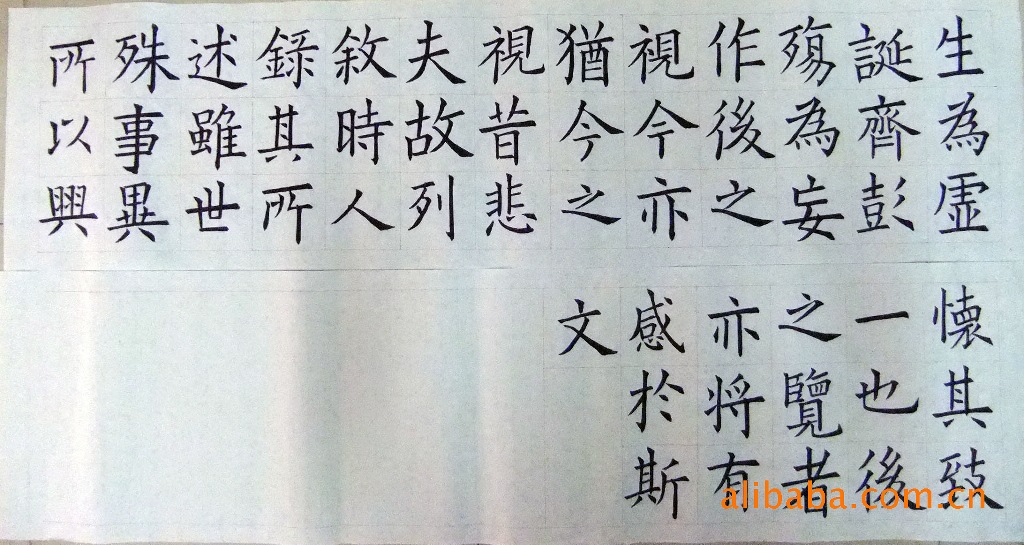 生為虛
誕齊彭
殤為妄
作後之
視今亦
猶今之
視昔悲
夫故列
敘時人
錄其所
述雖世
殊事異
所以興
懐其致
一也後
之覽者
亦将有
感於斯
文
alibaba.com.cn